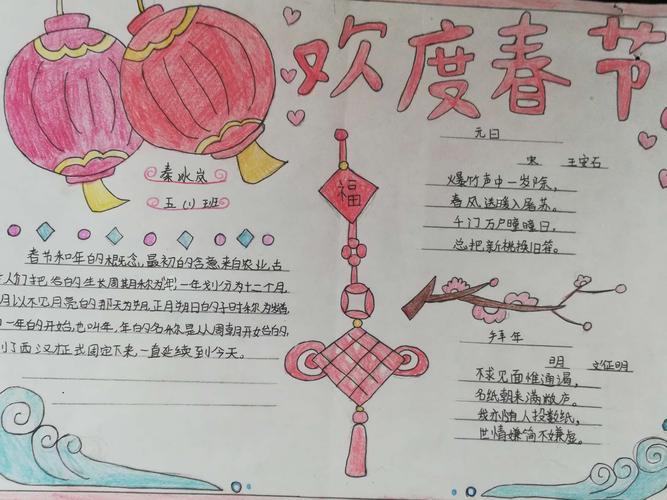 欢度春节
秦冰岚
五(1)班
春节和年的概念,最初的含意来自农业,古
人们把谷的生长周期称为"年",一年划分为十二个月,
月以不见月亮的那天为朔,正月朔日的子时称为岁首,
一年的开始,也叫年,年的名称是从周朝开始的,
到了西汉才正式固定下来,一直延续到今天。
福
元日
宋 王安石
爆竹声中一岁除,
春风送暖入屠苏。
千门万户曈曈日,
总把新桃换旧符。
拜年
明 文征明
不求见面惟通谒,
名纸朝来满敝庐。
我亦随人投数纸,
世情嫌简不嫌虚。